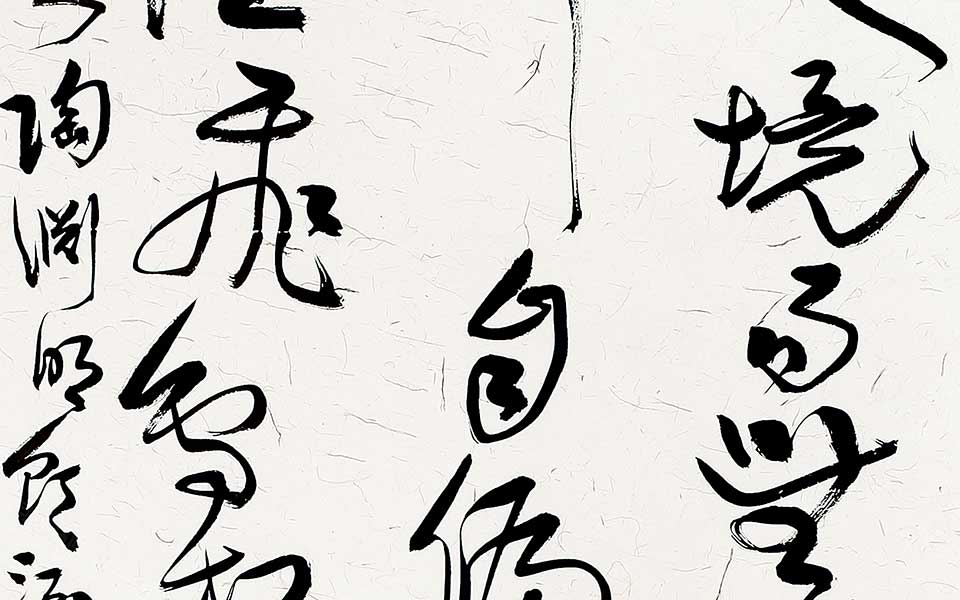 境而無
自偏
飛鳥相
陶淵明飲酒